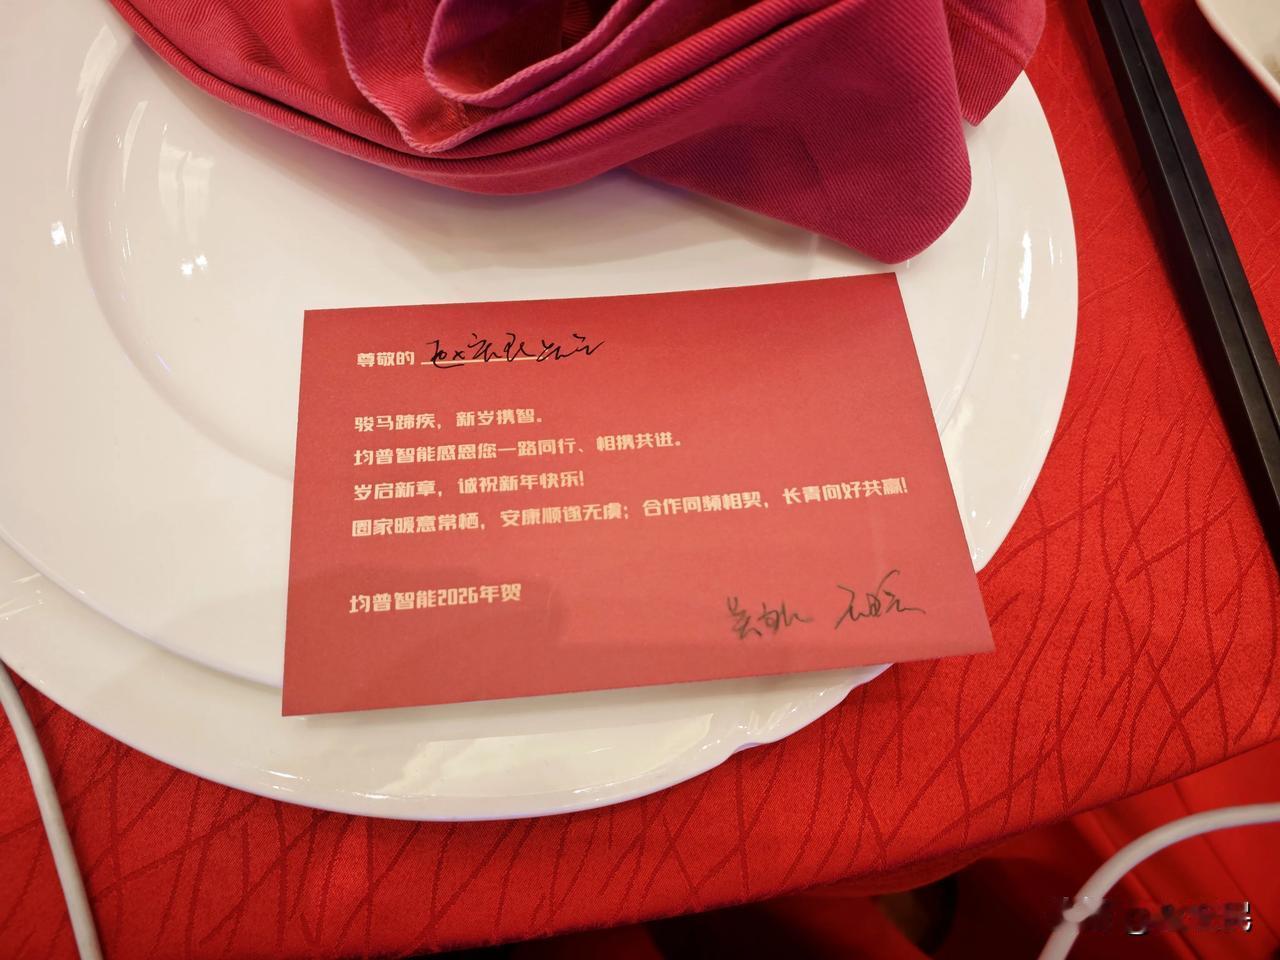 尊敬的
骏马蹄疾，新岁携智。
均普智能感恩您一路同行、相携共进。
岁启新章，诚祝新年快乐!
阖家暖意常栖，安康顺遂无虞；合作同频相契，长青向好共赢!
均普智能2026年贺